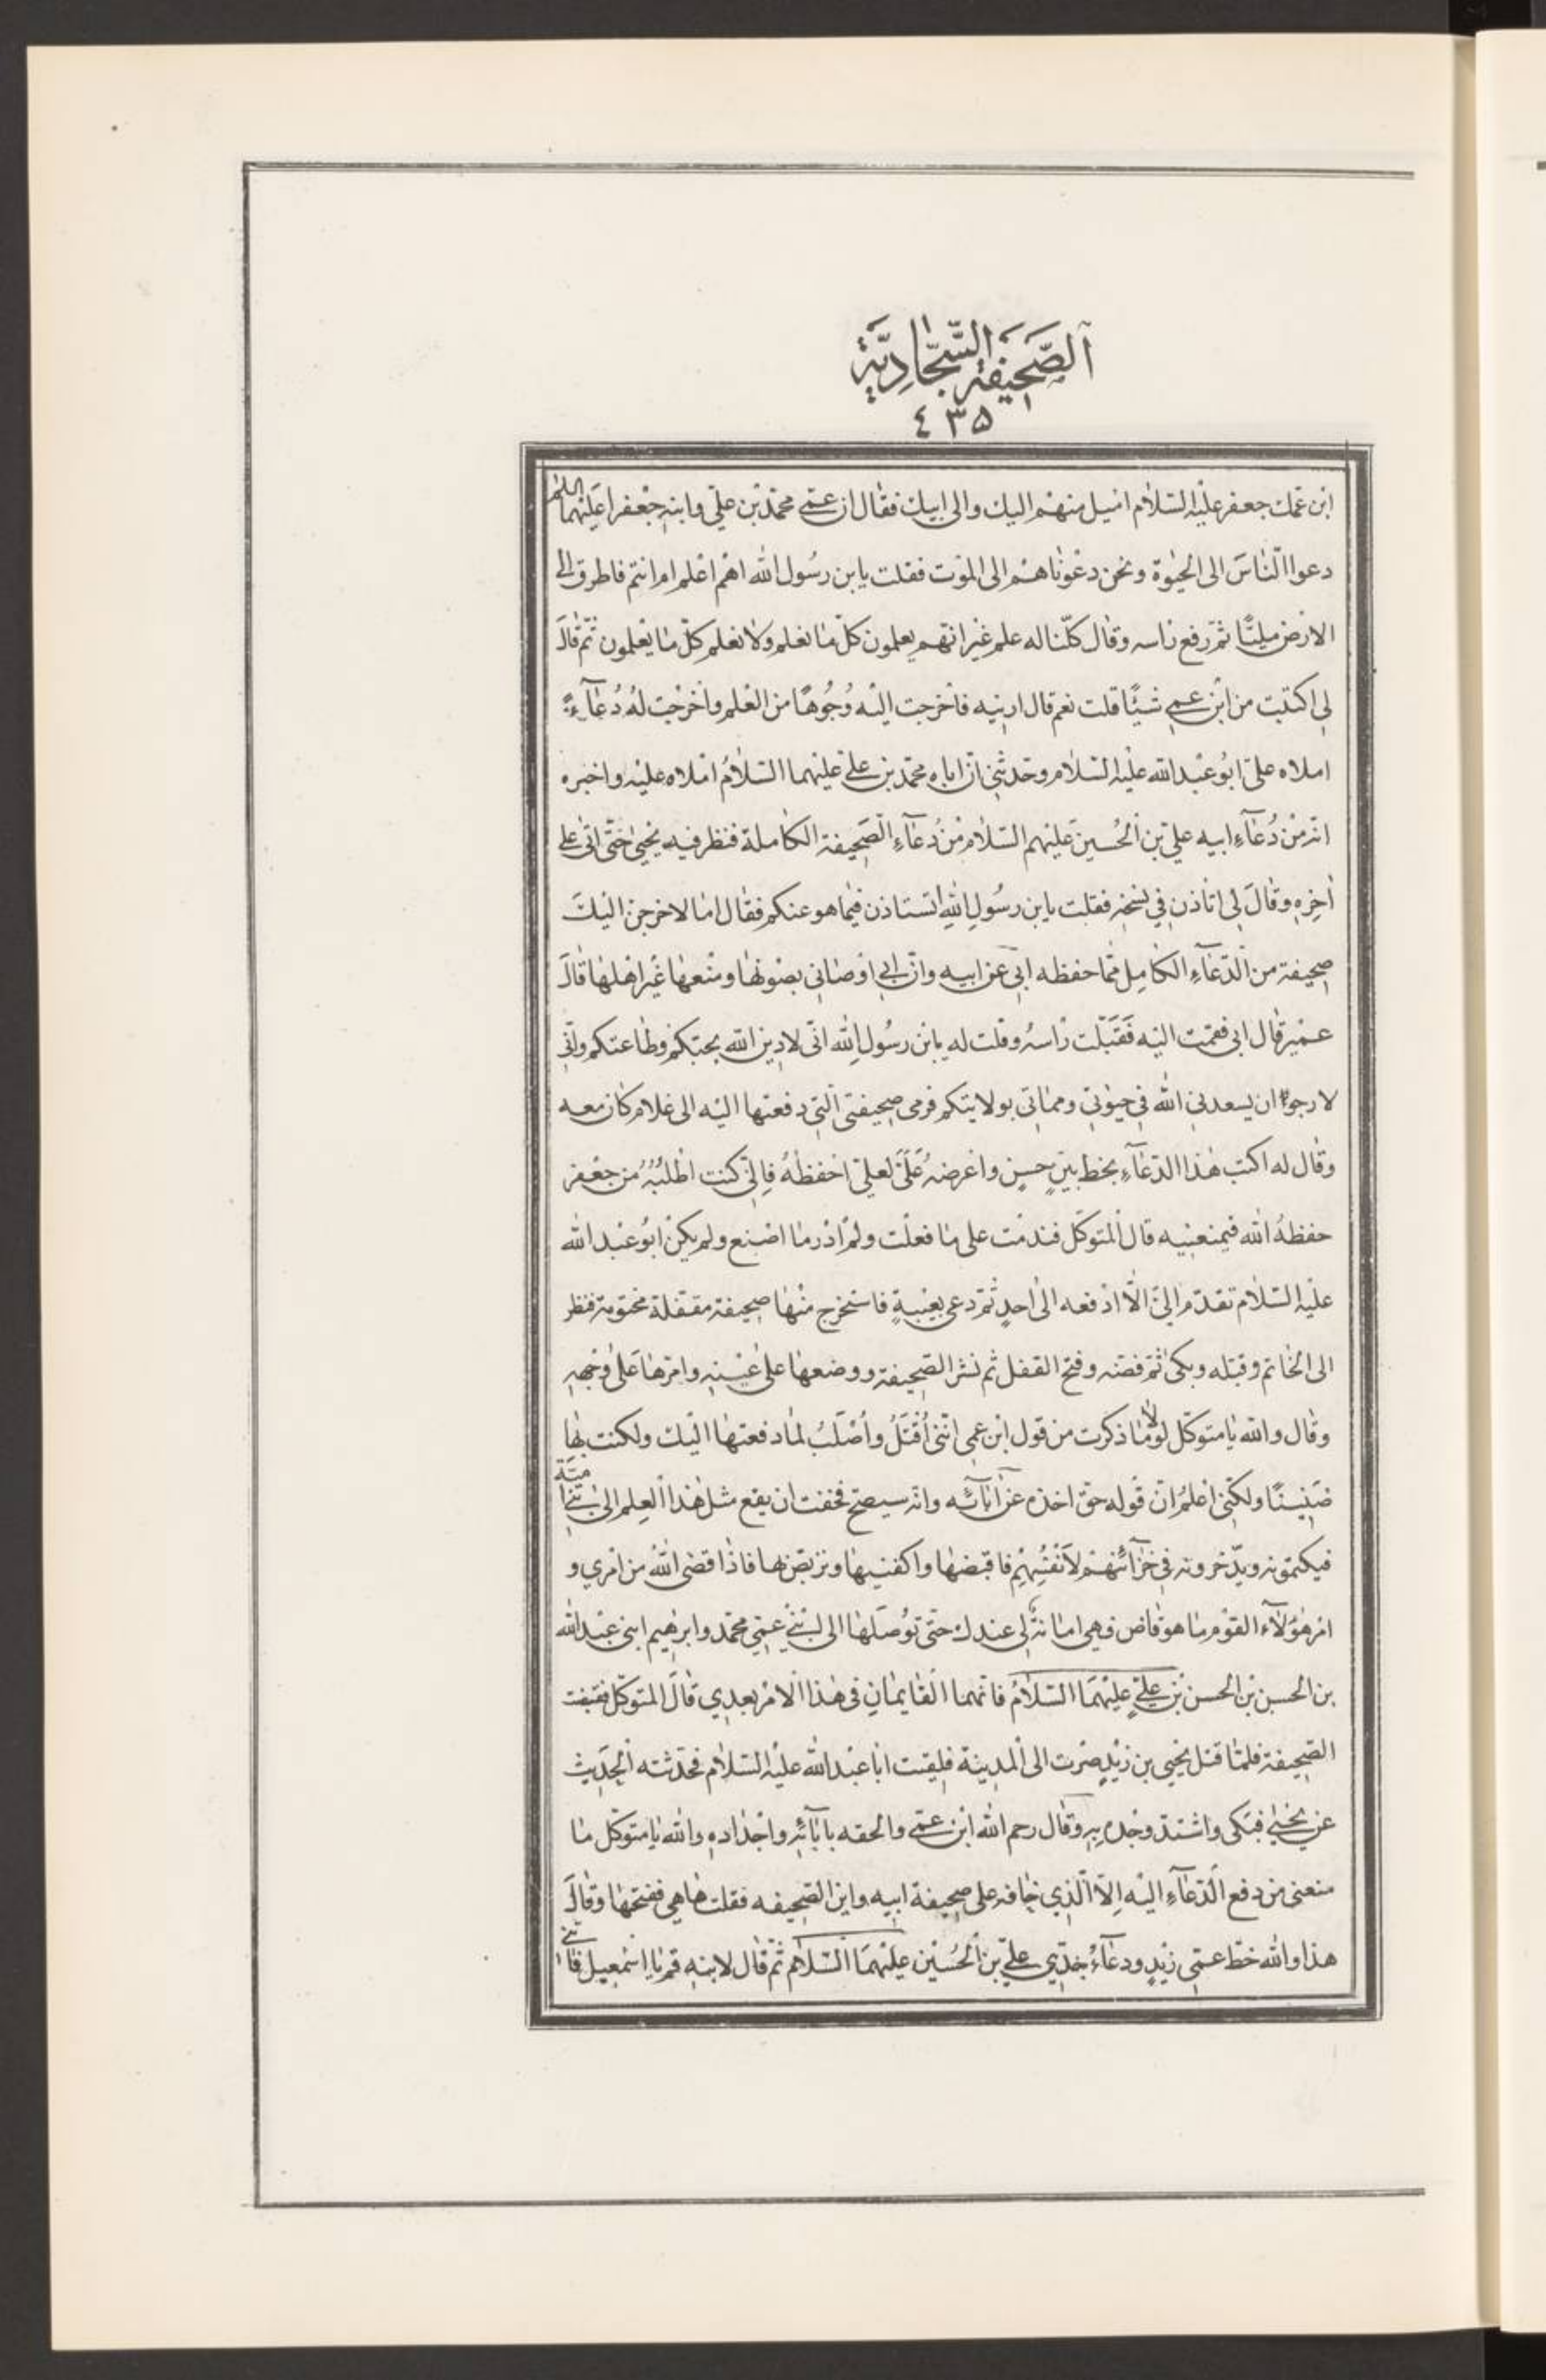 الصَّحيفَة السَّجّادِيَّة
٤٣٥
ابن عمّك جعفر عليه السّلام اميل منهم اليك والى ابيك فقال ان عمّي محمّد بن عليّ وابنه جعفرا عليهما السلم
دعوا النّاس الى الحيوة ونحن دعوناهم الى الموت فقلت يابن رسول الله اهم اعلم ام انتم فاطرق الى
الارض مليّا ثمّ رفع راسه وقال كلّنا له علم غير انّهم يعلمون كلّ ما نعلم ولا نعلم كلّ ما يعلمون ثمّ قال
لي اكتبت من ابن عمي شيئًا قلت نعم قال ارنيه فاخرجت اليه وُجُوهًا من العلم واخرجت له دُعآءً
املاه عليّ ابو عبد الله عليه السّلام وحدثني انّ اباه محمّد بن علي عليهما السّلامُ املاه عليه واخبره
انّه من دُعآءِ ابيه علي بن الحُسين عليهم السّلام من دُعآءِ الصّحيفة الكاملة فنظر فيه يحيى حتّى اتى على
اخِرِهِ وقال لي اتاذن في نسخه فقلت يابن رسُولِ اللهِ اتستاذن فيما هو عنكم فقال اما لاخرجن اليكَ
صحيفة من الدّعآءِ الكامِل ممّا حفظه ابي عن ابيه وانّ ابي اوصاني بصونها ومنعها غير اهلها قال
عمير قال ابي فقمت اليه فَقَبّلت راسهُ وقلت له يابن رسُولِ الله انّي لادين الله بحبّكم وطاعتكم وانّي
لارجوا ان يسعدني الله في حيوتي ومماتي بولايتكم فرمى صحيفتي الّتي دفعتها اليه الى غلام كان معه
وقال له اكتب هذا الدّعآءِ بخط بيّنٍ حسنٍ واعرضه عَلَيّ لعليّ احفظهُ فانّي كنت اطلبُهُ من جعفر
حفظهُ الله فيمنعنيه قال المتوكّل فندمت على ما فعلت ولم ادر ما اصنع ولم يكن ابُو عبد الله
عليه السّلام تقدّم اليّ الّا ادفعه الى احدٍ ثمّ دعى بعيبةٍ فاستخرج منها صحيفة مقفلة مختومة فنظر
الى الخاتم وقبّله وبكى ثمّ فضّه وفتح القفل ثم نشر الصّحيفة ووضعها على عينه وامرّها على وجهه
وقال والله يا متوكّل لولا ما ذكرت من قول ابن عمي انّني اُقتَلُ واُصلَبُ لما دفعتها اليك ولكنت بها
ضنينًا ولكنّي اعلمُ انّ قوله حقّ اخذه عن آبآئه وانّه سيصحّ فخفت ان يقع مثل هذا العِلم الى بني اميّة
فيكتموه ويدّخروه في خزآئنهم لانفُسِهِم فاقبضها واكفنيها وتربّص بها فاذا قضى اللهُ من امري و
امر هؤلآء القوم ما هو قاض فهي امانة لي عندك حتّى توُصلها الى ابني عمّي محمّد وابرهيم ابنى عبد الله
بن الحسن بن الحسن بن عليّ عليهما السّلامُ فانّهما القايمانِ في هذا الامر بعدي قالَ المتوكّل فقبضت
الصّحيفة فلمّا قتل يحيى بن زيدٍ صرت الى المدينة فلقيت ابا عبد الله عليه السّلام فحدّثته الحديث
عن يحيى فبكى واشتدّ وجده به وقال رحم الله ابن عمّي والحقه بابآئه واجداده والله يا متوكّل ما
منعنى من دفع الدّعآءِ اليه اِلّا الّذي خافه على صحيفة ابيه واين الصّحيفه فقلت ها هي ففتحها وقال
هذا والله خطّ عمّي زيدٍ ودعآءُ جدّي عليّ بن الحُسين عليهما السّلام ثمّ قال لابنه قم يا اسمعيل فاتني